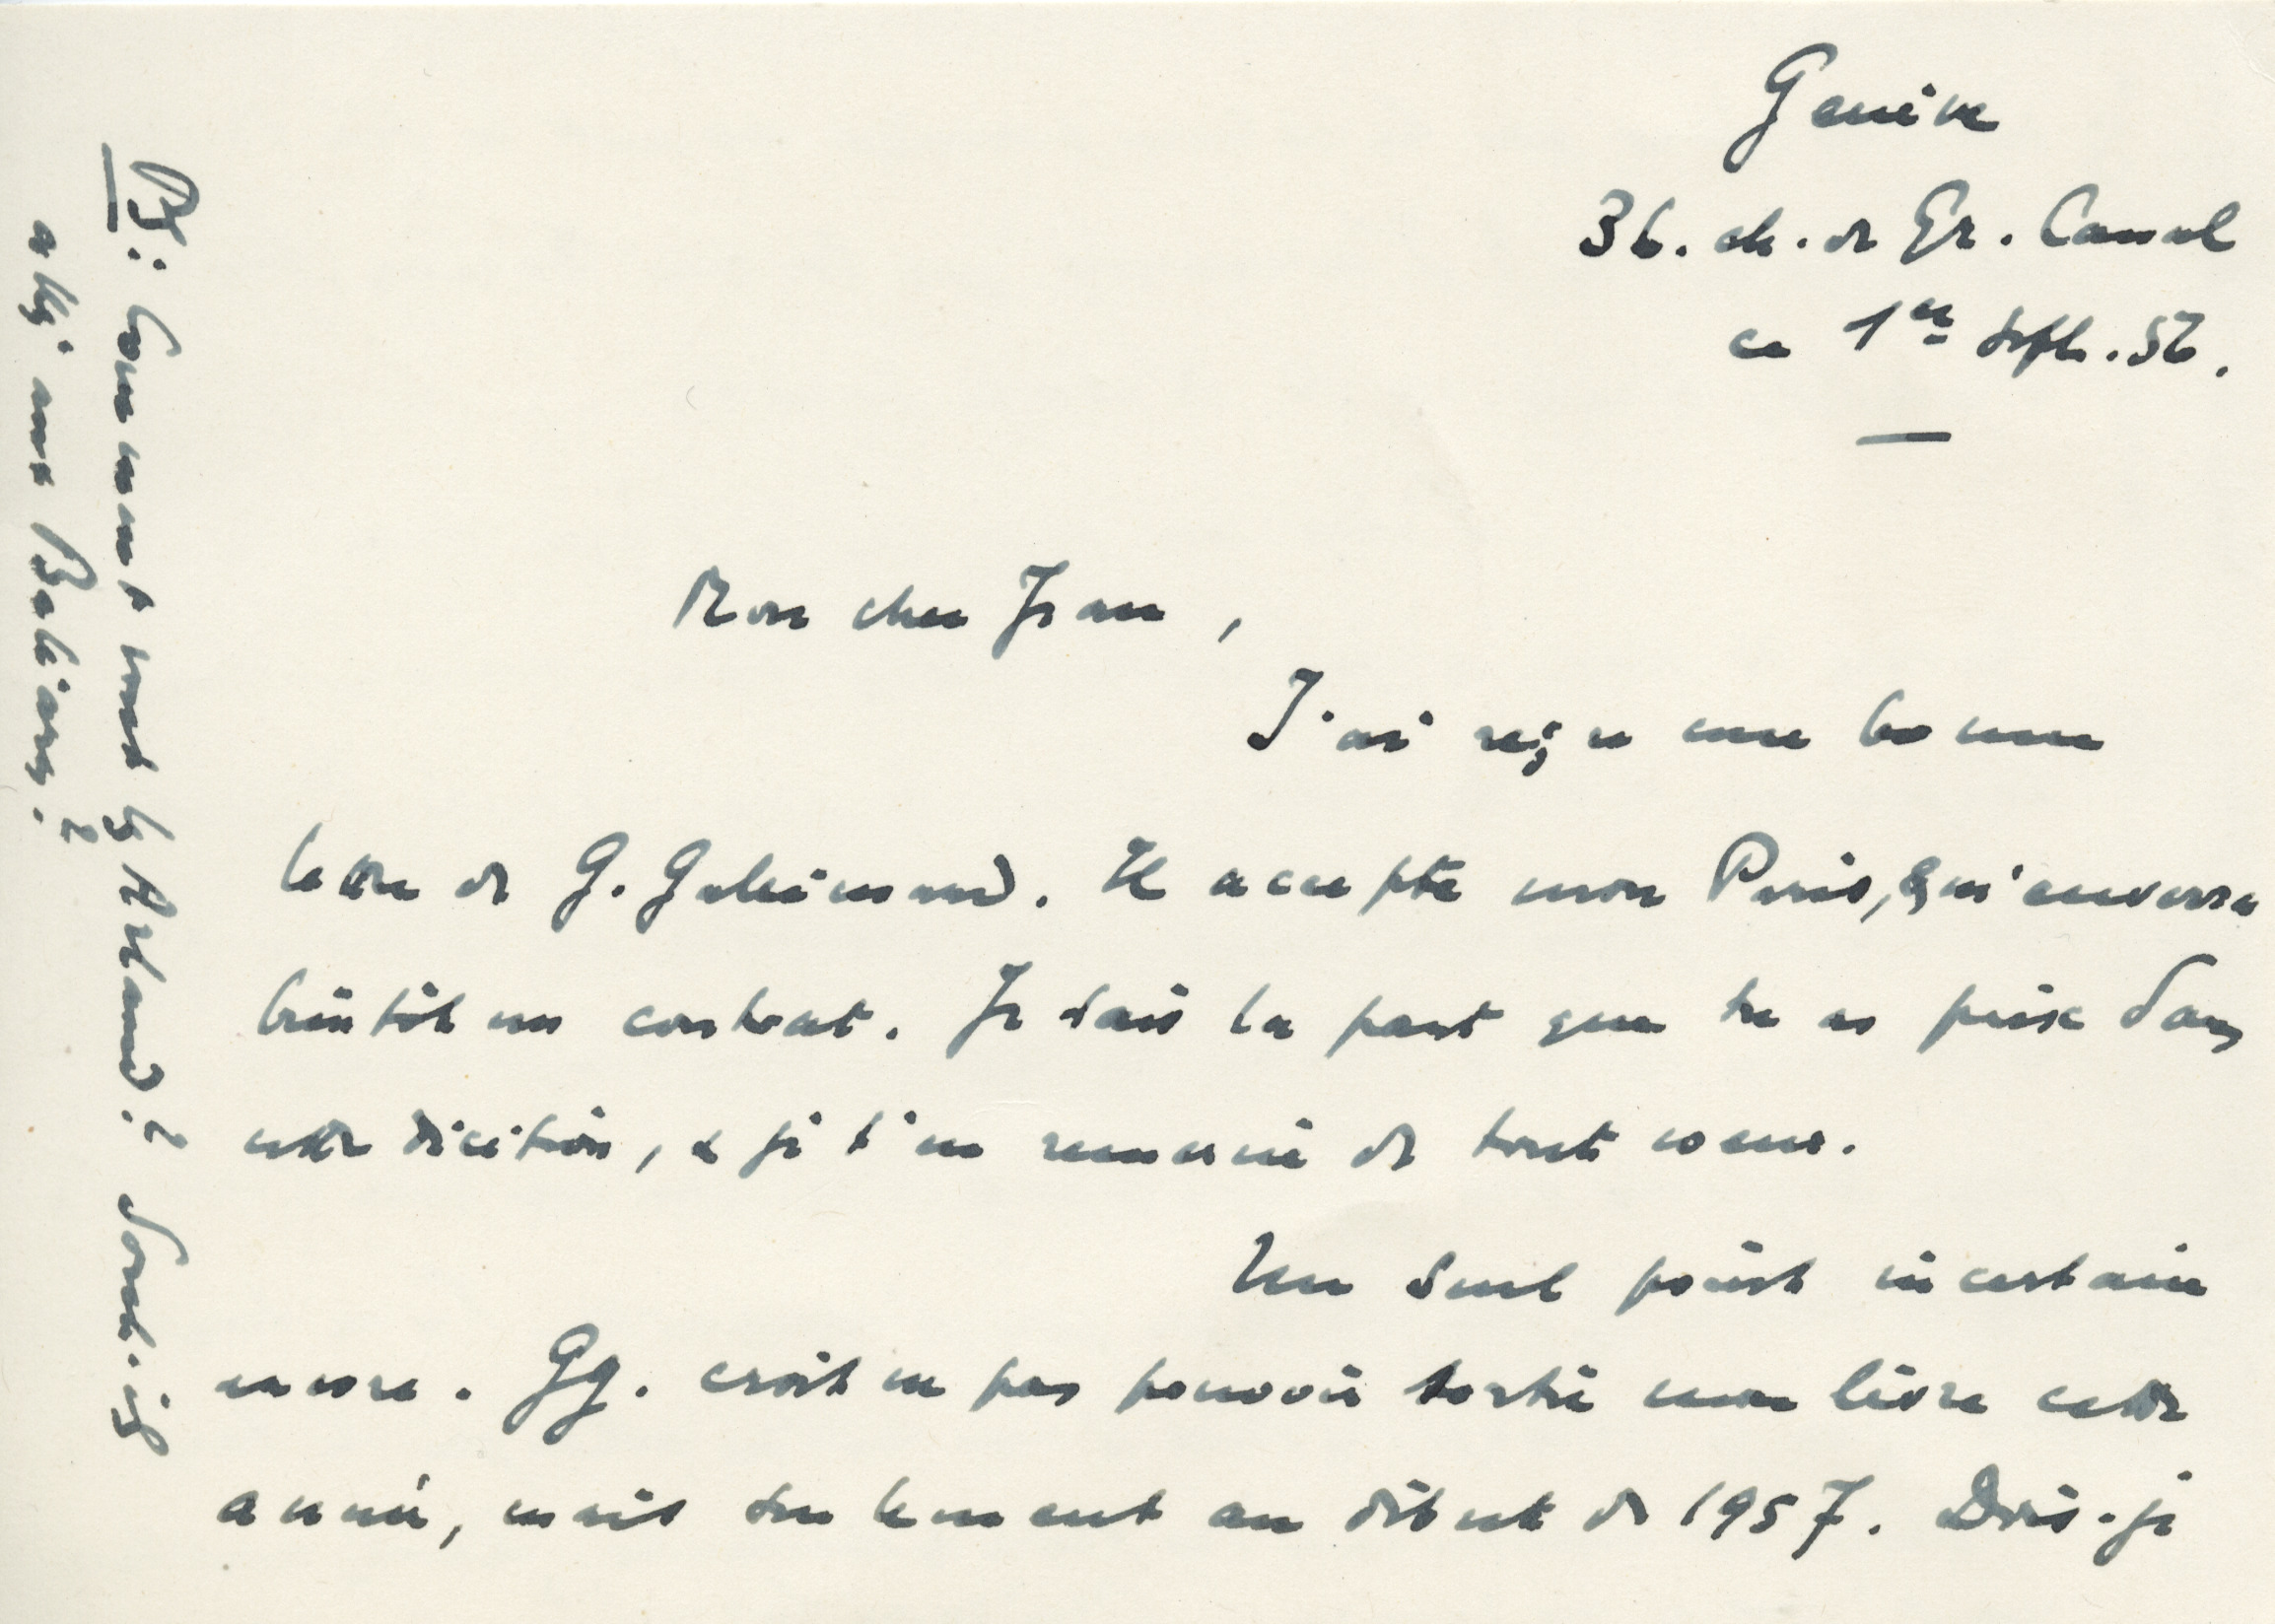 Genève
36. ch. de Gr. Canal
ce 1er Sept. 56.
Mon cher Jean,
J'ai reçu une bonne
lettre de G. Gallimard. Il accepte mon Paris, & m'enverra
bientôt un contrat. Je sais la part que tu as prise dans
cette décision, & je t'en remercie de tout cœur.
Un seul point incertain
encore. GG. croit ne pas pouvoir sortir mon livre cette
année, mais seulement au début de 1957. Dois-je
PS: Comment vont les Arland? Sont-ils
allés aux Baléares?